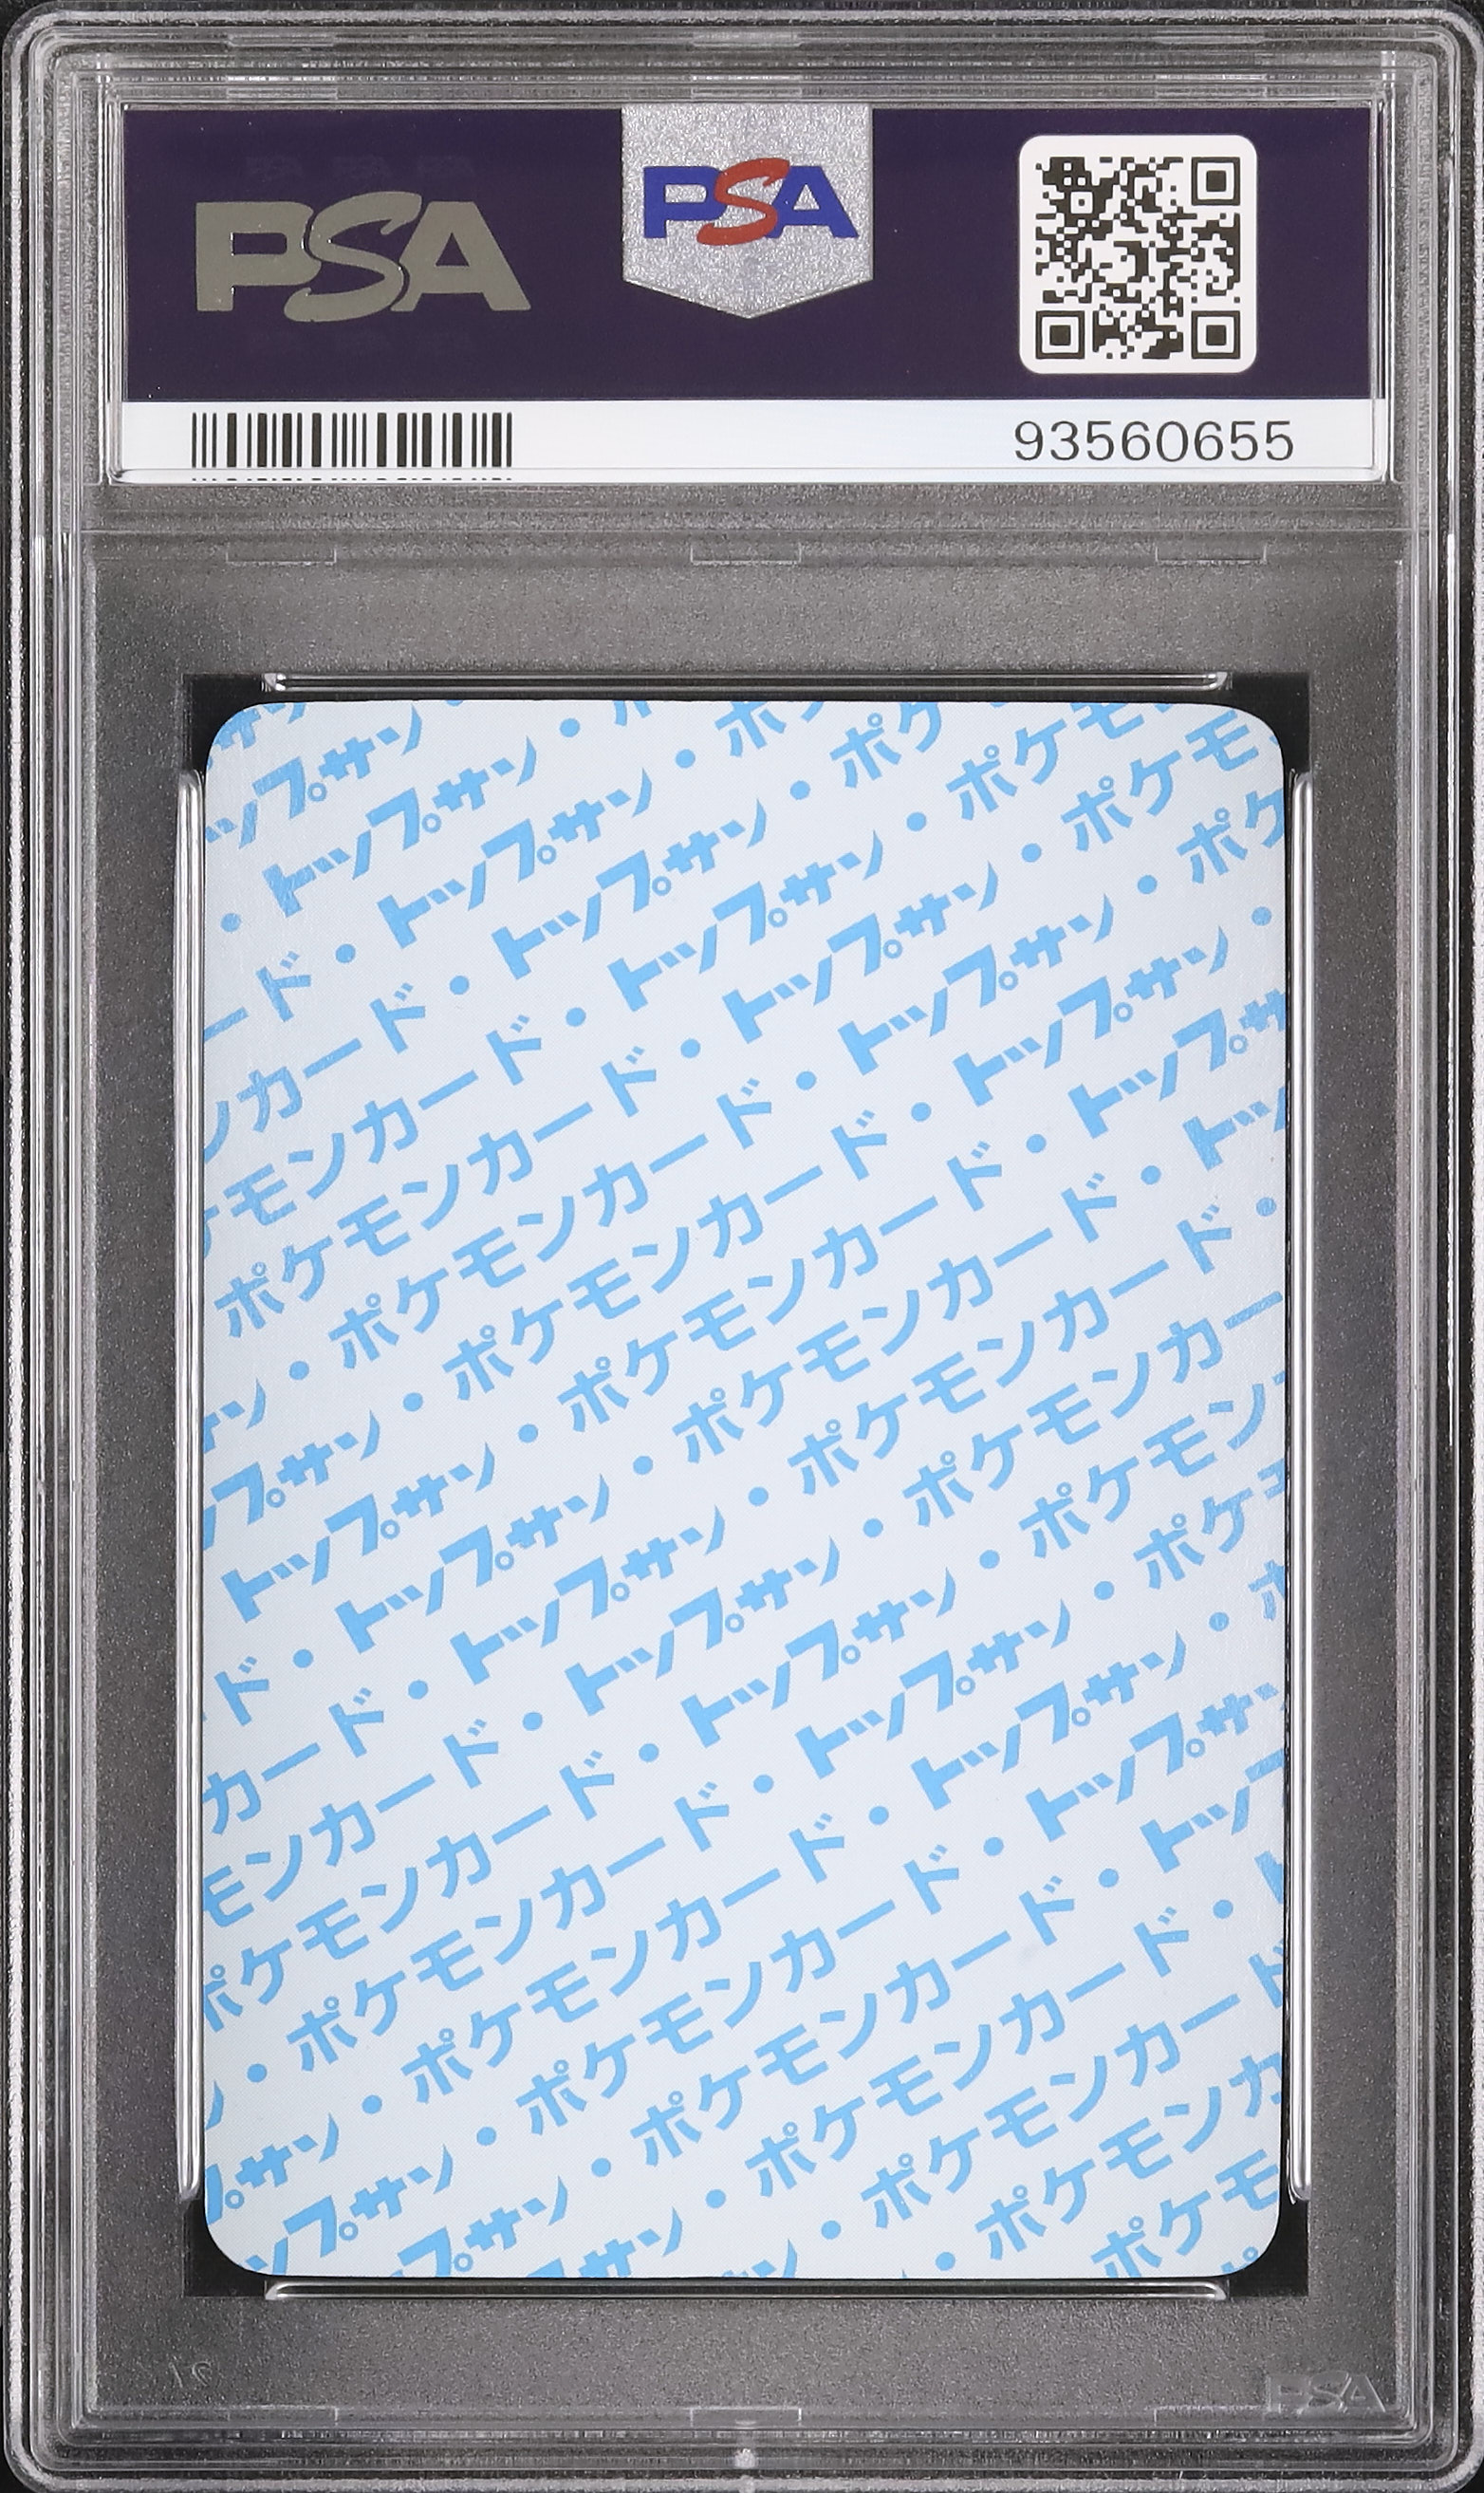 PSA
PSA
93560655
サ
ップサン
・トップサン・
ード・トップサン・ポ
ンカード・トップサン・ポケ
ケモンカード・トップサン・ポケモ
ポケモンカード・トップサン・ポケモ
サン・ポケモンカード・トップサン・ポケ
プサン・ポケモンカード・トップサン・
トップサン・ポケモンカード・トップサ
ド・トップサン・ポケモンカード・トッ
カード・トップサン・ポケモンカード・
モンカード・トップサン・ポケモンカー
ポケモンカード・トップサン・ポケモン
・ポケモンカード・トップサン・ポケモ
プサン・ポケモンカード・トップサン・ポ
ップサン・ポケモンカード・トップサ
プサン・ポケモンカード・トップ
サン・ポケモンカード・
ン・ポケモンカード
・ポケモンカ
ポケモ
PSA